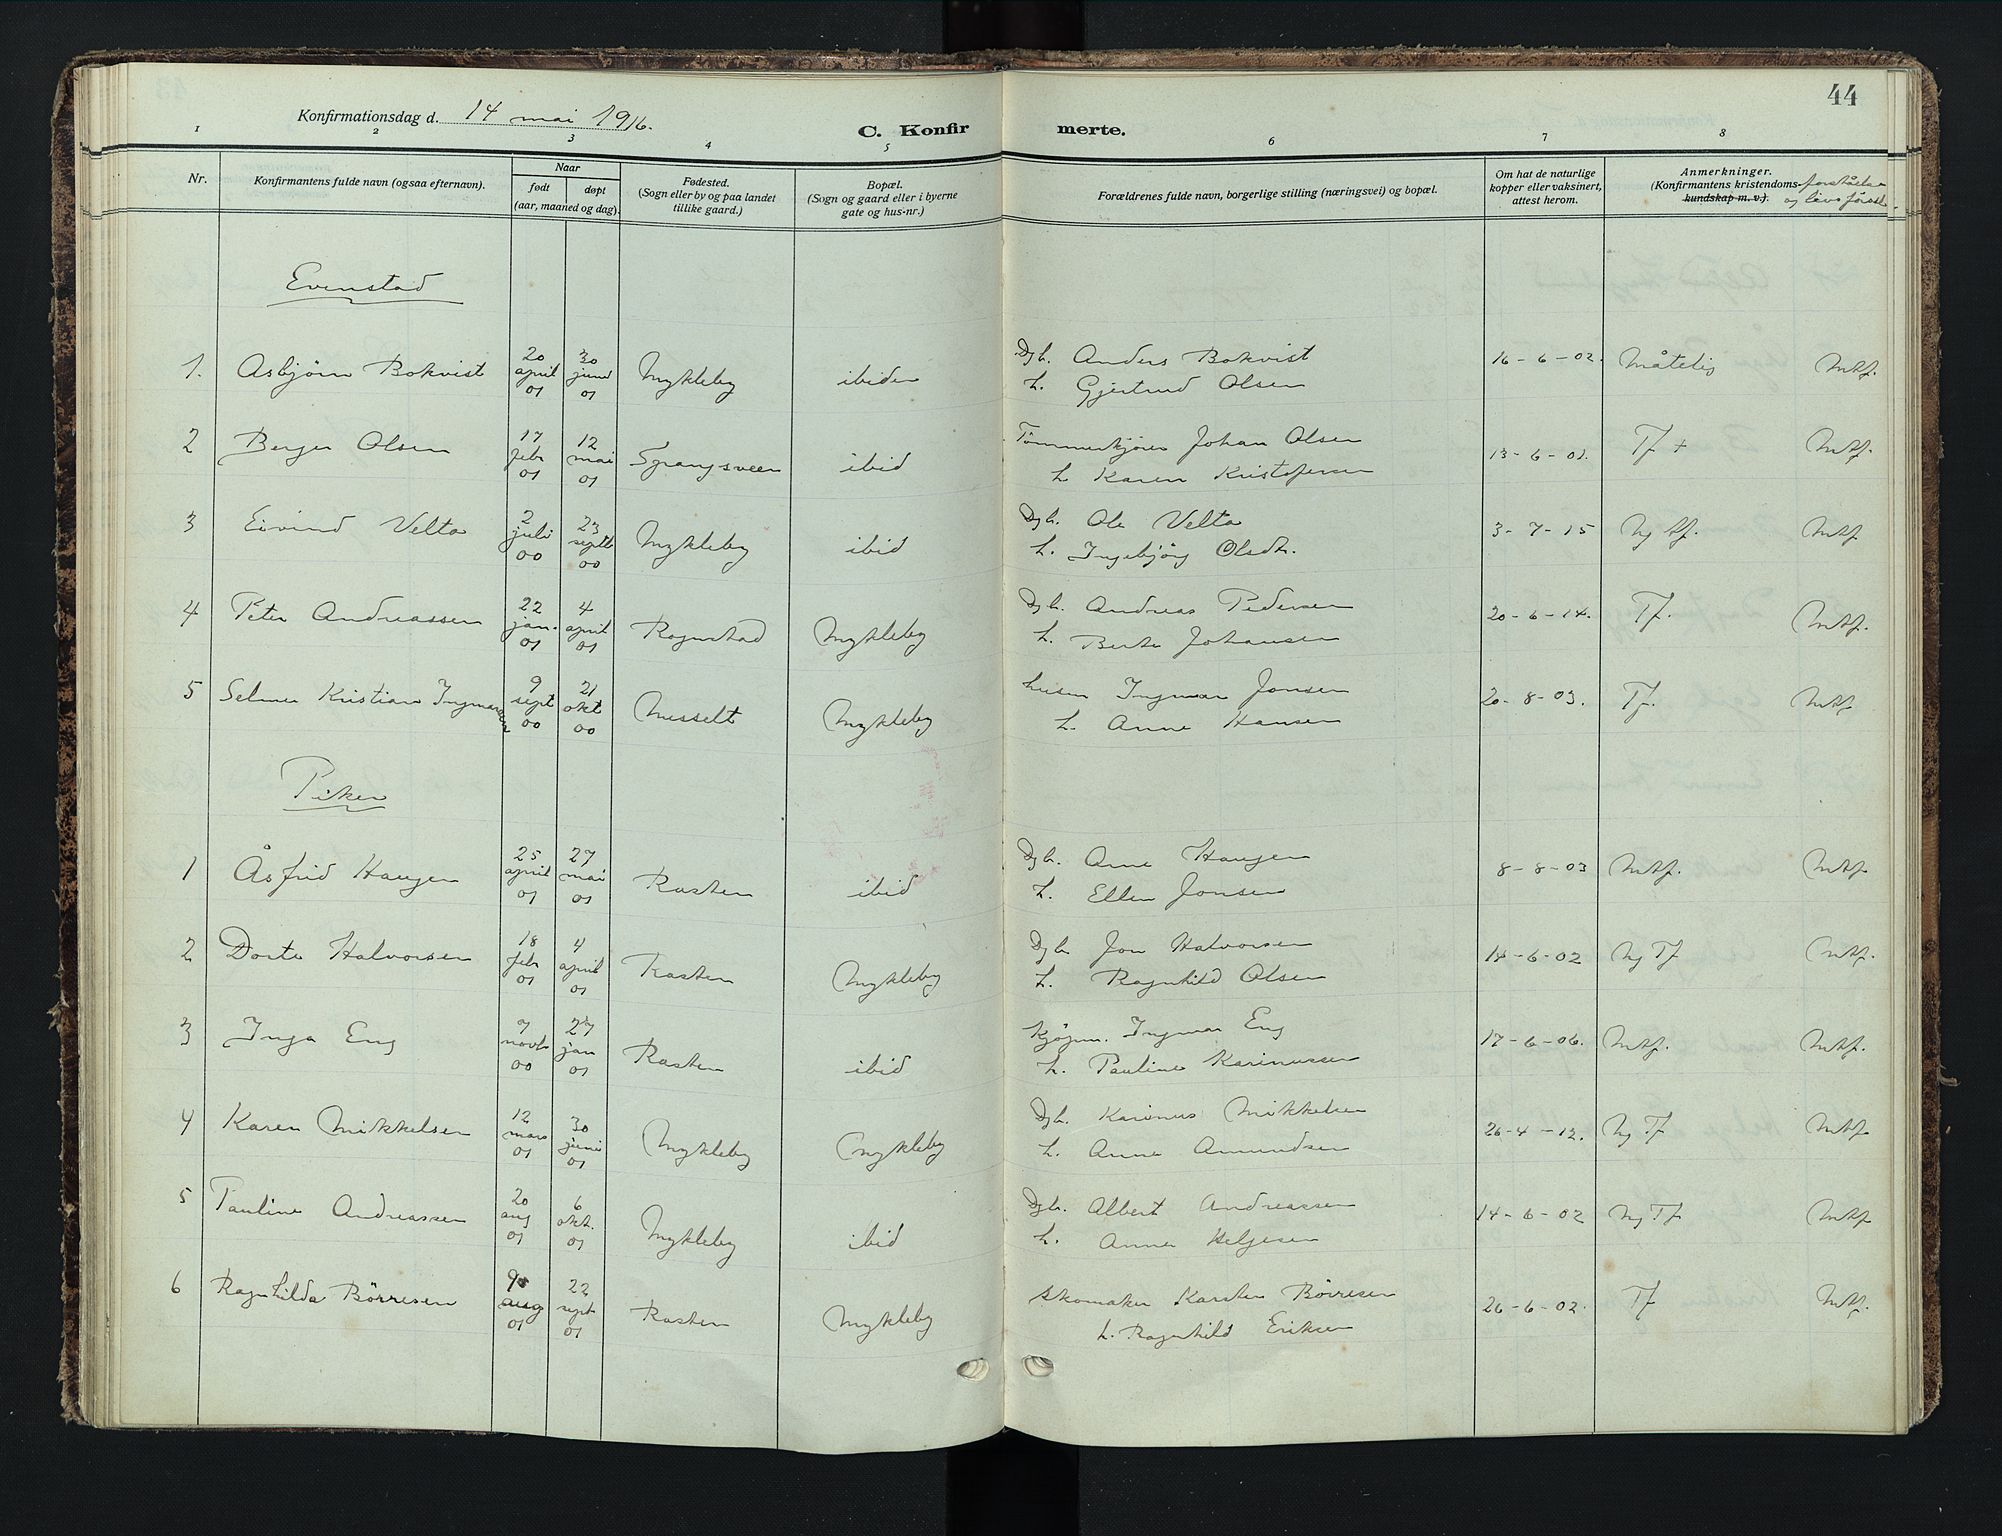 44
Konfirmationsdag d. 14 mai 1916.
C. Konfirmerte.
1 2 3 4 5 6 7 8
Nr. Konfirmantens fulde navn (ogsaa efternavn). Naar født døpt (aar, maaned og dag). Fødested. (Sogn eller by og paa landet tillike gaard.) Bopæl. (Sogn og gaard eller i byerne gate og hus-nr.) Forældrenes fulde navn, borgerlige stilling (næringsvei) og bopæl. Om hat de naturlige kopper eller vaksinert, attest herom. Anmerkninger. (Konfirmantens kristendoms-kundskap m. v.). forståelse og livsførsel
Evenstad
1. Asbjørn Bokvist 20 april 01 30 juni 01 Mykleby ibiden Dgb. Anders Bokvist h. Gjertrud Olsen 16-6-02. Måtelig Mtf.
2 Berger Olsen 17 febr 01 12 mai 01 Sprangsveen ibid Tømmerkjører Johan Olsen h Karen Kristofersen 13-6-01. Tf + Mtf.
3 Eivind Velta 2 juli 00 23 septb 00 Mykleby ibid Dgb. Ole Velta h. Ingebjørg Olsdtr. 3-7-15 Ng tf. Mtf
4 Peter Andreassen 22 jan. 01 4 april 01 Rognstad Mykleby Dgb. Andreas Pedersen h. Berte Johansen 20-6-14. Tf. Mtf.
5 Selmer Kristian Ingmarsen 9 sept 00 21 okt 00 Messelt Mykleby husm Ingmar Jonsen h. Anne Hansen 20-8-03. Tf. Mtf
Piker
1 Åsfrid Haugen 25 april 01 27 mai 01 Rasten ibid Dgb. Arne Haugen h. Ellen Jonsen 8-8-03 Mtf. Mtf
2 Dorte Halvorsen 18 febr 01 4 april 01 Rasten Mykleby Dgb Jon Halvorsen h. Ragnhild Olsen 14-6-02 Ng Tf Mtf.
3 Inga Eng 7 novb 00 27 jan 01 Rasten ibid Kjøpm. Ingmar Eng h. Pauline Karinussen 17-6-06. Mtf. Mtf.
4 Karen Mikkelsen 12 mars 01 30 juni 01 Mykleby Mykleby Dgb. Karinus Mikkelsen h. Anne Amundsen 26-4-12. Ng Tf Mtf
5 Pauline Andreassen 20 aug 01 6 okt. 01 Mykleby ibid Dgbr. Albert Andreassen h. Anne Helgesen 14-6-02 Ng Tf Mtf
6 Ragnhilda Börresen 9 aug 01 22 sept 01 Rasten Mykleby Skomaker Karsten Börresen h. Ragnhild Eriksen 26-6-02. Tf Mtf.